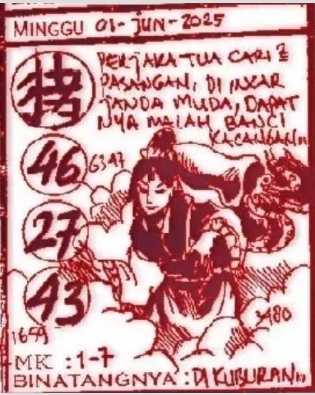 MINGGU 01-JUN-2025
PERJAKA TUA CARI2
PASANGAN, DI INCAR
JANDA MUDA, DAPAT
NYA MALAH BANCI
KACANGAN
猪
46
6347
27
43
1659
3480
MK : 1-7
BINATANGNYA : DI KUBURAN